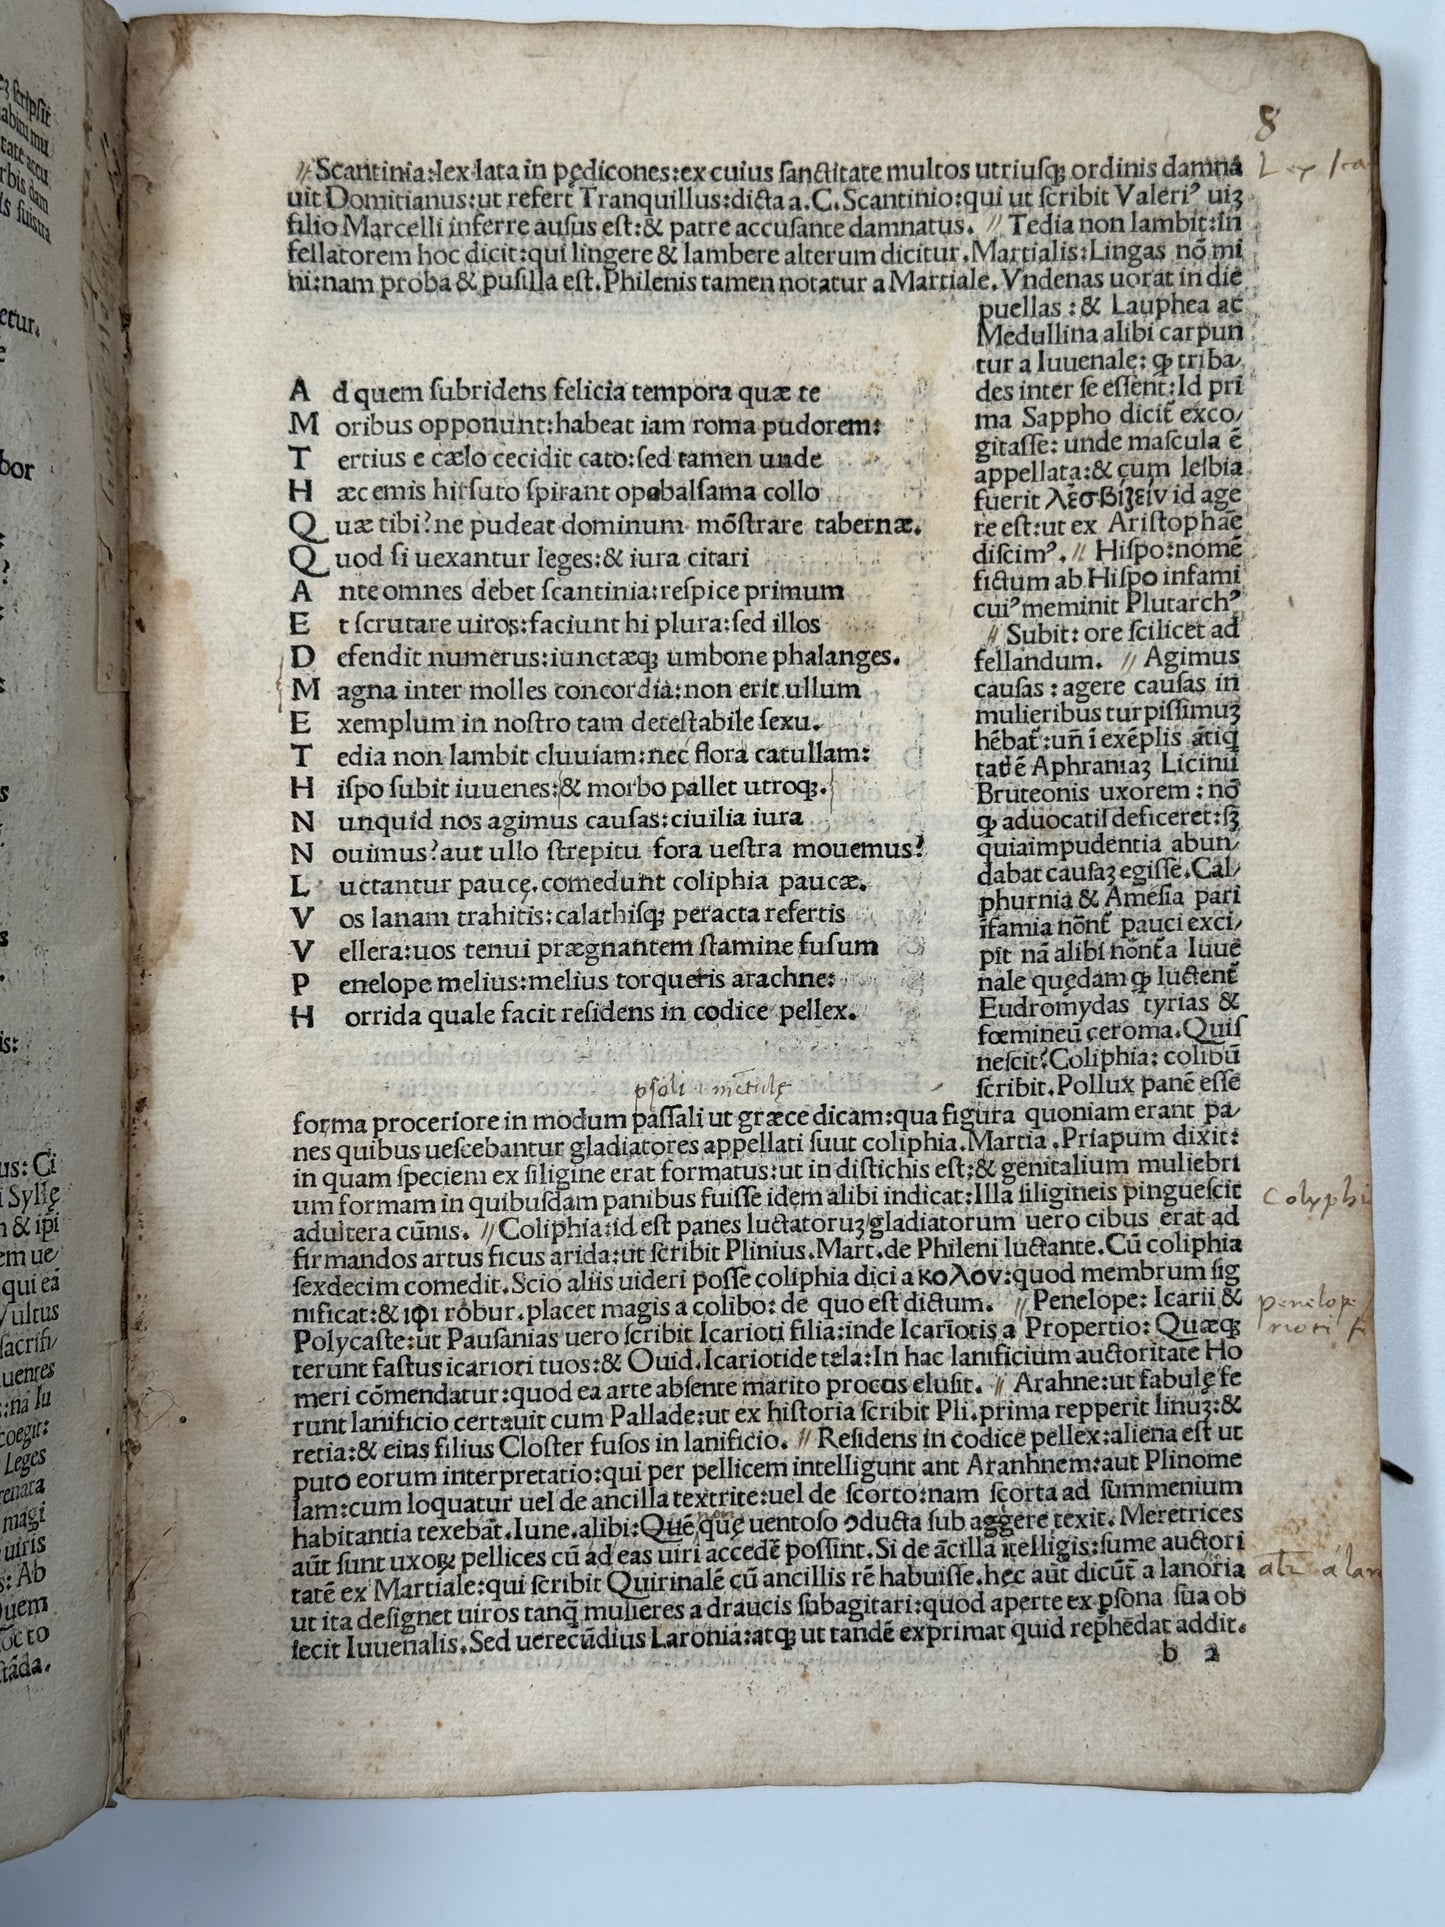 8
// Scantinia: lex lata in pędicones: ex cuius ſanctitate multos utriuſqꝫ ordinis damna
uit Domitianus: ut refert Tranquillus: dicta a. C. Scantinio: qui ut ſcribit Valeriꝰ uiꝫ
filio Marcelli inferre auſus eſt: & patre accuſante damnatus. // Tedia non lambit: in
fellatorem hoc dicit: qui lingere & lambere alterum dicitur. Martialis: Lingas nõ mi
hi: nam proba & puſilla eſt. Philenis tamen notatur a Martiale. Vndenas uorat in die
puellas: & Lauphea ac
Medullina alibi carpun
tur a Iuuenale: qꝫ triba/
des inter ſe eſſent: Id pri
ma Sappho dicit̃ exco/
gitaſſe: unde maſcula ẽ
appellata: & cum leſbia
fuerit λεσβίζειν id age
re eſt: ut ex Ariſtophãe
diſcimꝰ. // Hiſpo: nomẽ
fictum ab Hiſpo infami
cuiꝰ meminit Plutarchꝰ
// Subit: ore ſcilicet ad
fellandum. // Agimus
cauſas: agere cauſas in
mulieribus turpiſſimuꝫ
hẽbat̃: uñ ĩ exẽplis ãtiq̃
tatẽ Aphraniaꝫ Licinii
Bruteonis uxorem: nõ
qꝫ aduocatiſ deficeret: ſꝫ
quia impudentia abun/
dabat cauſaꝫ egiſſe. Cal/
phurnia & Ameſia pari
ĩfamia nõnt̃ pauci exci/
pit nã alibi nõnt̃ a Iuuẽ
nale quędam qꝫ luctent̃
Eudromydas tyrias &
fœmineũ ceroma. Quiſ
neſcit? Coliphia: colibũ
ſcribit. Pollux panẽ eſſe
A d quem ſubridens felicia tempora quæ te
M oribus opponunt: habeat iam roma pudorem:
T ertius e cælo cecidit cato: ſed tamen unde
H æc emis hirſuto ſpirant opobalſama collo
Q uæ tibi? ne pudeat dominum mõſtrare tabernæ.
Q uod ſi uexantur leges: & iura citari
A nte omnes debet ſcantinia: reſpice primum
E t ſcrutare uiros: faciunt hi plura: ſed illos
D efendit numerus: iunctæqꝫ umbone phalanges.
M agna inter molles concordia: non erit ullum
E xemplum in noſtro tam deteſtabile ſexu.
T edia non lambit cluuiam: nec flora catullam:
H iſpo ſubit iuuenes: & morbo pallet utroqꝫ.
N unquid nos agimus cauſas: ciuilia iura
N ouimus? aut ullo ſtrepitu fora ueſtra mouemus?
L uctantur paucę. comedunt coliphia paucæ.
V os lanam trahitis: calathiſqꝫ peracta refertis
V ellera: uos tenui prægnantem ſtamine fuſum
P enelope melius: melius torquetis arachne:
H orrida quale facit reſidens in codice pellex.
forma proceriore in modum paſſali ut græce dicam: qua figura quoniam erant pa/
nes quibus ueſcebantur gladiatores appellati ſuut coliphia. Martia. Priapum dixit:
in quam ſpeciem ex ſiligine erat formatus: ut in diſtichis eſt; & genitalium muliebri
um formam in quibuſdam panibus fuiſſe idem alibi indicat: Illa ſiligineis pingueſcit
adultera cũnis. // Coliphia: id eſt panes luctatoruꝫ gladiatorum uero cibus erat ad
firmandos artus ficus arida: ut ſcribit Plinius. Mart. de Phileni luctante. Cũ coliphia
ſexdecim comedit. Scio aliis uideri poſſe coliphia dici a κολον: quod membrum ſig
nificat: & ιφι robur. placet magis a colibo: de quo eſt dictum. // Penelope: Icarii &
Polycaſte: ut Pauſanias uero ſcribit Icarioti filia: inde Icariotis a Propertio: Quæqꝫ
terunt faſtus icariori tuos: & Ouid. Icariotide tela: In hac lanificium auctoritate Ho
meri cõmendatur: quod ea arte abſente marito procus eluſit. // Arahne: ut fabulę fe
runt lanificio certauit cum Pallade: ut ex hiſtoria ſcribit Pli. prima repperit linuꝫ: &
retia: & eius filius Cloſter fuſos in lanificio. // Reſidens in codice pellex: aliena eſt ut
puto eorum interpretatio: qui per pellicem intelligunt ant Aranhnem: aut Plinome
lam: cum loquatur uel de ancilla textrite: uel de ſcorto: nam ſcorta ad ſummenium
habitantia texebãt. Iune. alibi: Quẽ quę uentoſo ↄducta ſub aggere texit. Meretrices
aũt ſunt uxoꝝ pellices cũ ad eas uiri accedẽ poſſint. Si de ãcilla ĩtelligis: ſume auctori
tatẽ ex Martiale: qui ſcribit Quirinalẽ cũ ancillis rẽ habuiſſe. hęc aũt dicũt̃ a lanoria
ut ita deſignet uiros tanq̃ mulieres a draucis ſubagitari: quod aperte ex pſona ſua ob
iecit Iuuenalis. Sed uerecũdius Laronia: atqꝫ ut tandẽ exprimat quid rephẽdat addit.
b 2
Lex ſca
Colyphi
penelope